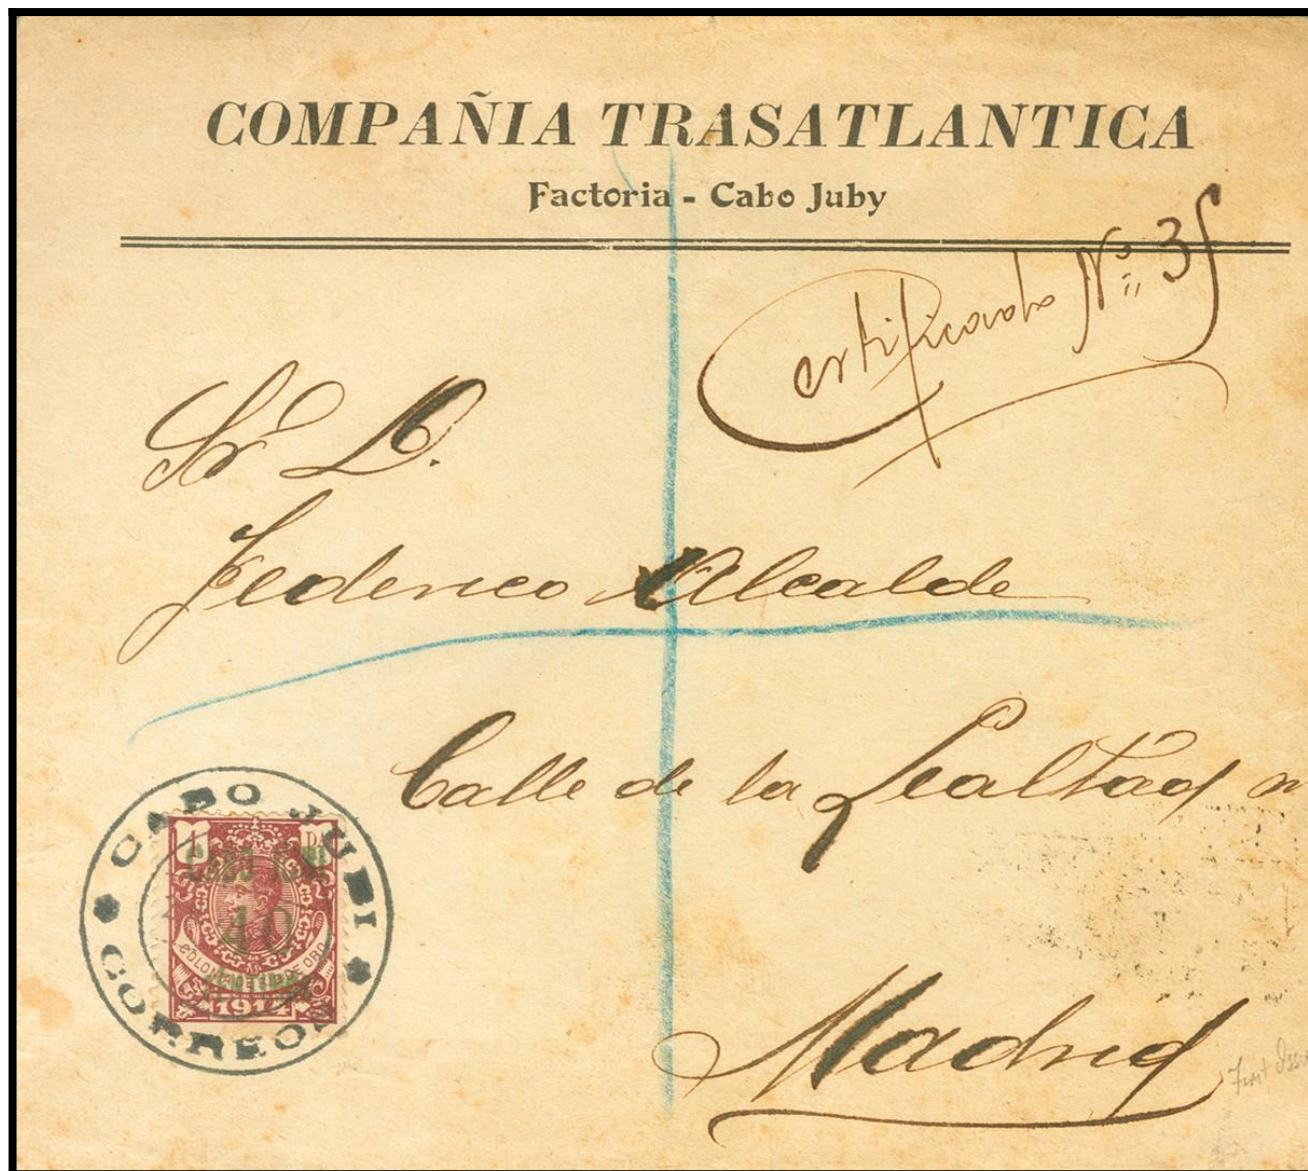 COMPAÑIA TRASATLANTICA
Factoria - Cabo Juby
Certificado Nº 35
Sr D.
Federico Alcalde
Calle de la Lealtad n
CABO JUBI
1 Pta
CABO JUBI
40
COLONIA DE RIO DE ORO
1914
CORREOS
Madrid
First Issue